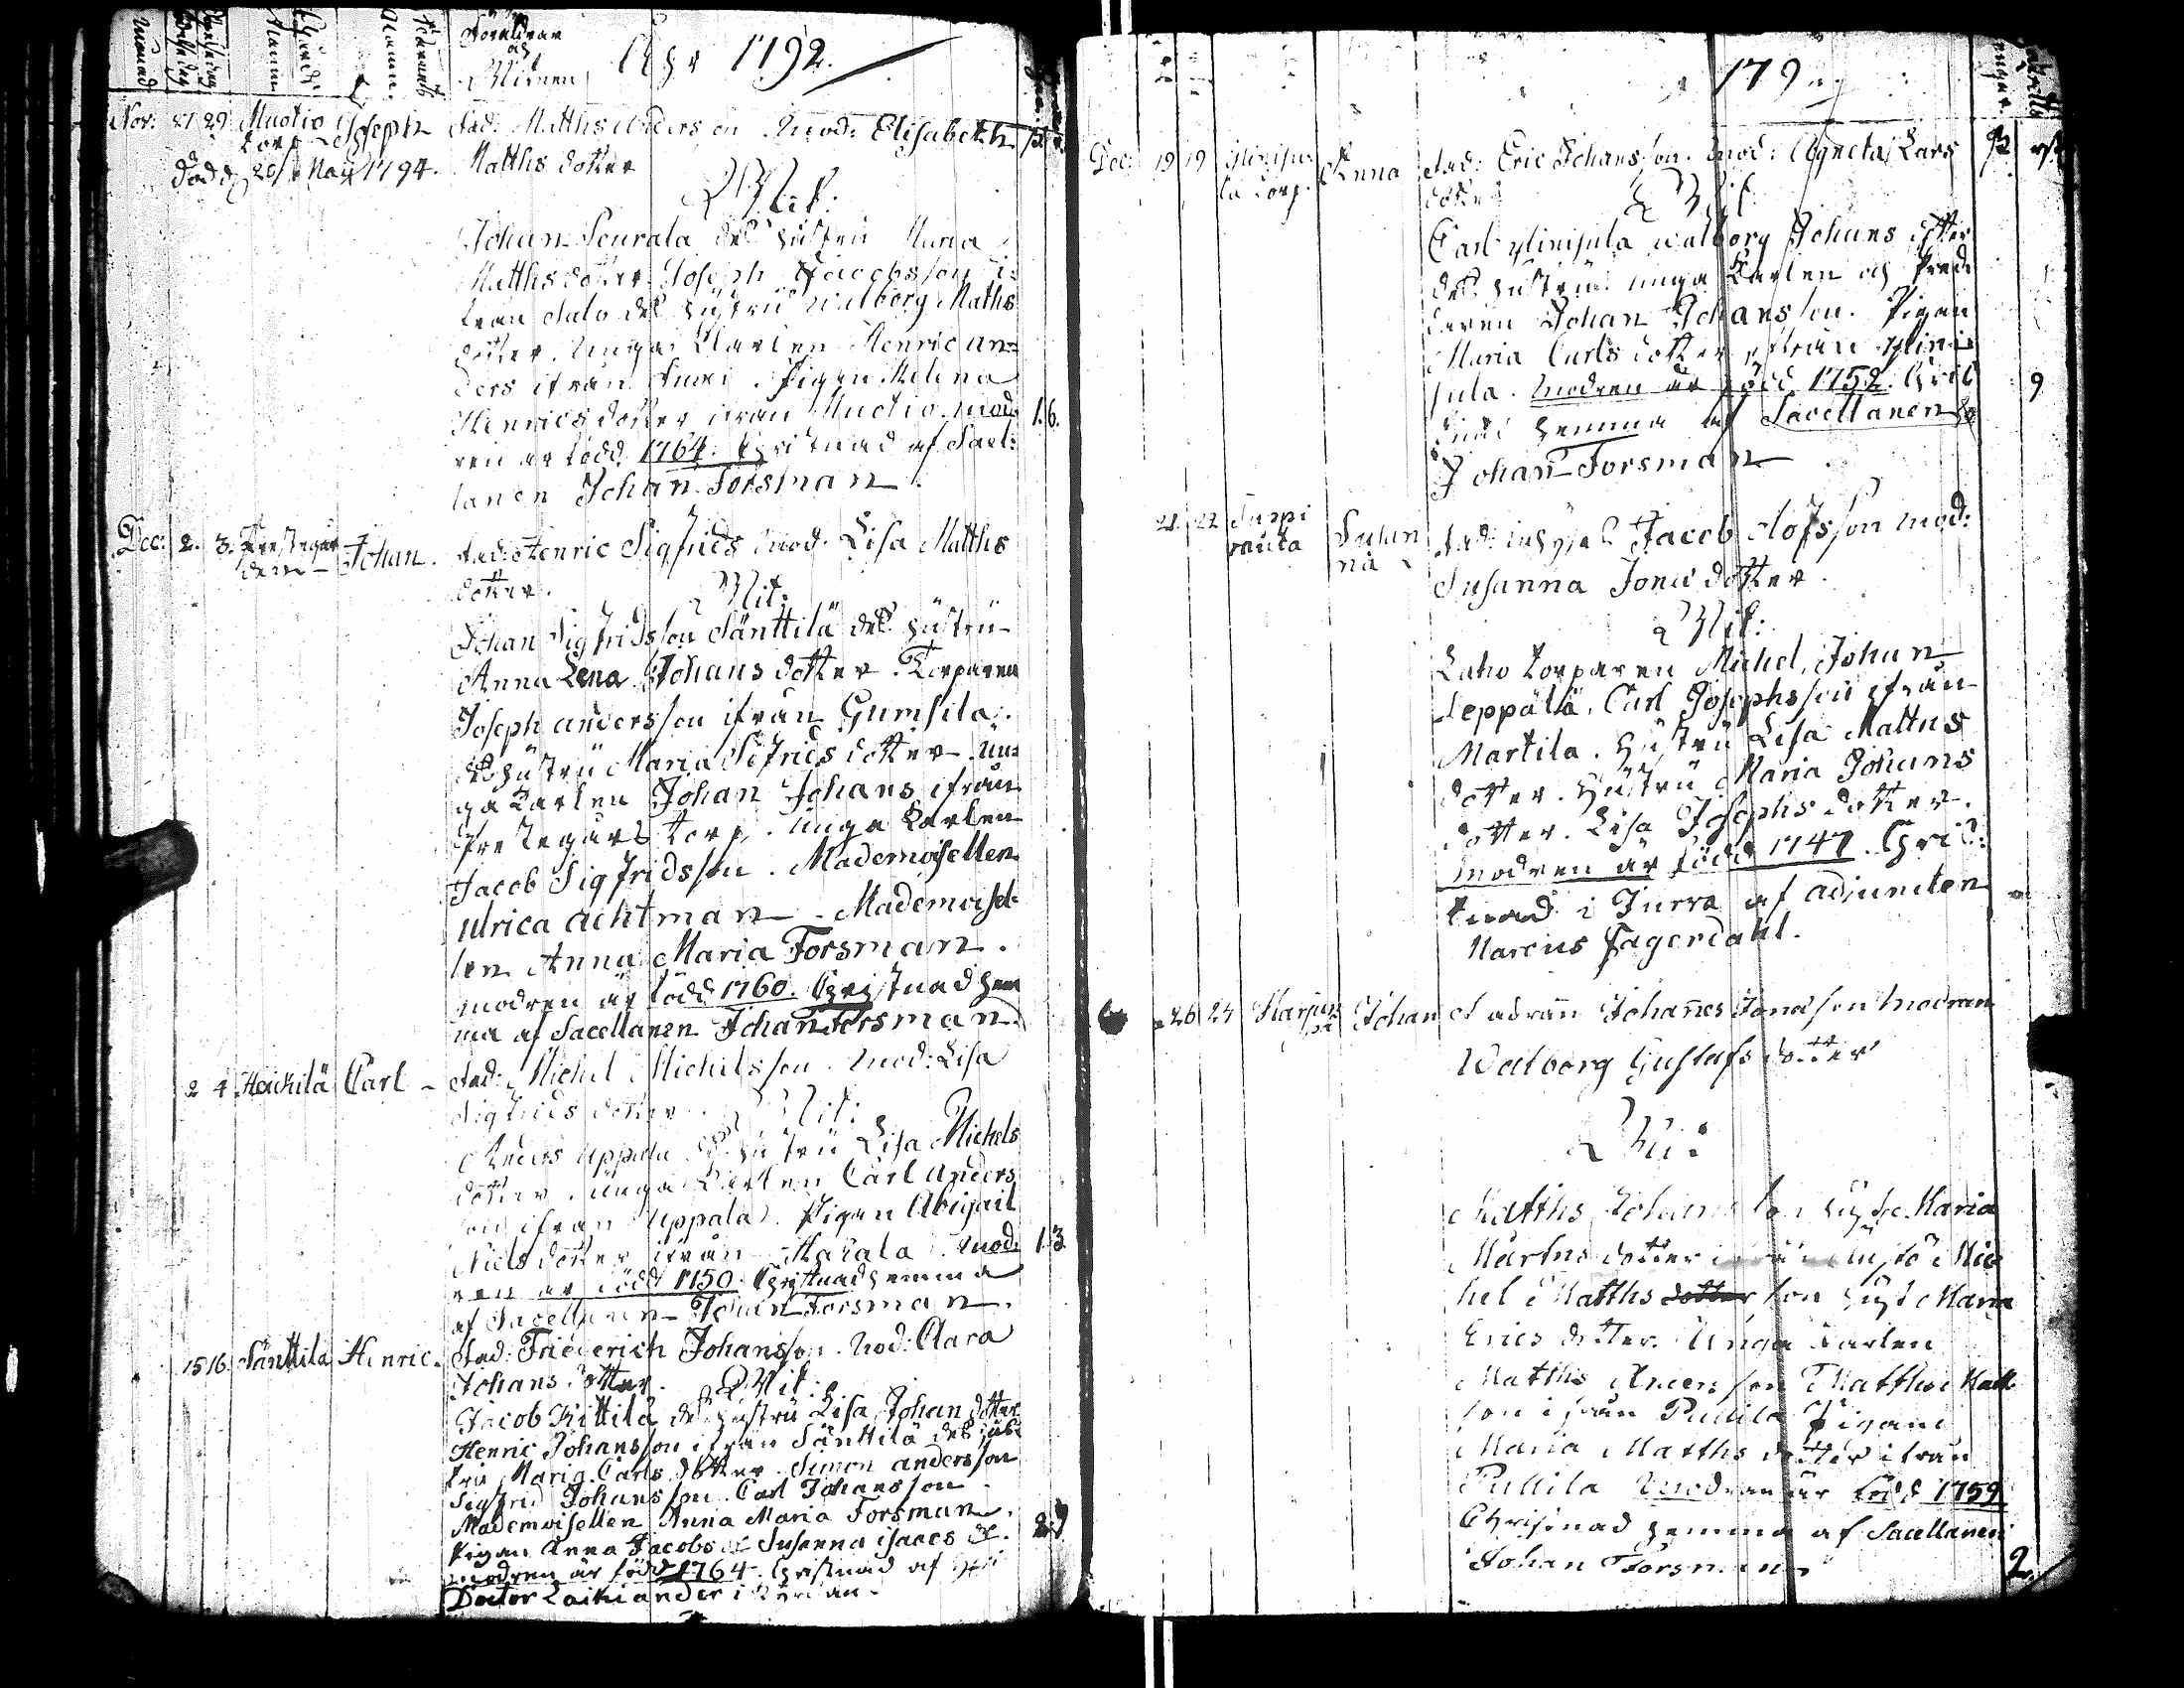 Föräldrar
och
Witnen
Åhr 1792.
Nov: 27 29 Muotio torp Joseph Fad: Matths Anders son Mod: Elisabeth
död d. 20 May 1794. Matths dotter
Wit:
Johan Seurala des hustru Maria
Matths dotter. Joseph Jacobsson i-
från Salo des hustru Walborg Matths
dotter. Unga Karlen Henric An=
ders ifrån. Pigan Helena
Henrics dotter ifrån Muotio. mod 1. 6.
ren är född 1764. Christnad af Sacel:
lanen Johan Forsman.
Dec: 2. 3. Prestegår den Johan. Fad: Henric Sigfrids Mod: Lisa Matths
dotter. Wit:
Johan Sigfridsson Sänttilä des hustru
Anna Lena Johans dotter. Torparen
Joseph Andersson ifrån Gumsila.
des hustru Maria Sifrids dotter. Un=
ga Karlen Johan Johans ifrån
Prestegårds torp. Unga Karlen
Jacob Sigfridsson. Mademoisellen
Ulrica Achtman. Mademoisel=
len Anna Maria Forsman.
modren är född 1760. Christnad hem
ma af Sacellanen Johan Forsman
2 4. Heickilä Carl Fad: Michel Michelsson. Mod: Lisa
Sigfrids dotter. Wit:
Anders Uppala des hustru Lisa Michels
dotter. Unga Karlen Carl Anders
son ifrån Uppala. Pigan Abigail
Niels dotter ifrån Hakala. Mod: 1. 3
ren är född 1750. Christnad hemma
af Sacellanen Johan Forsman.
15 16. Sänttila Henric. Fad: Friederich Johansson. Mod: Clara
Johans dotter. Wit:
Jacob Kittila des hustru Lisa Johan dotter
Henric Johansson ifrån Sänttilä des hus
tru Maria Carls dotter. Simon Andersson
Sigfrid Johansson. Carl Johansson
Mademoisellen Anna Maria Forsman.
Pigan Anna Jacobs d Susanna Isaacs d. 2. 9
modren är född 1764. Christnad af
Doctor Laihiander i kyrkan.
179
Dec: 19 19 torp. Anna Fad: Eric Johansson. Mod: Agneta Lars
dotter Wit
Carl Ylinisula Walborg Johans dotter
des hustru. Unga Karlen och
Johan Johansson. Pigan
Maria Carls dotter ifrån Ylini=
sula. Modren är född 1752. Christ 9
nad hemma af Sacellanen H
Johan Forsman
21. 22 Susan na Fad: Jacob Olofsson Mod:
Susanna Jonæ dotter.
Wit:
Laho torparen Michel, Johan
Leppälä. Carl Josephsson ifrån
Martila. Hustru Lisa Matths
dotter. Hustru Maria Johans
dotter. Lisa Josephs dotter.
modren är född 1747. Chris:
tnad i Jurva af Adjuncten
Marcus Fagerdahl.
26 27 Harjun pä Johan Fadran Johannes Jonasson Modran
Walborg Gustafs dotter
Wit:
Matths Johansson hustr Maria
Mårtens dotter Mic
hel Matths dotter son hust Maria
Erics dotter. Unga Karlen
Matths Andersson Matths Matts
son ifrån Pullila Pigan
Maria Matths dotter ifrån
Pullila Modran är född 1759
Christnad hemma af Sacellanen
Johan Forsman 2.